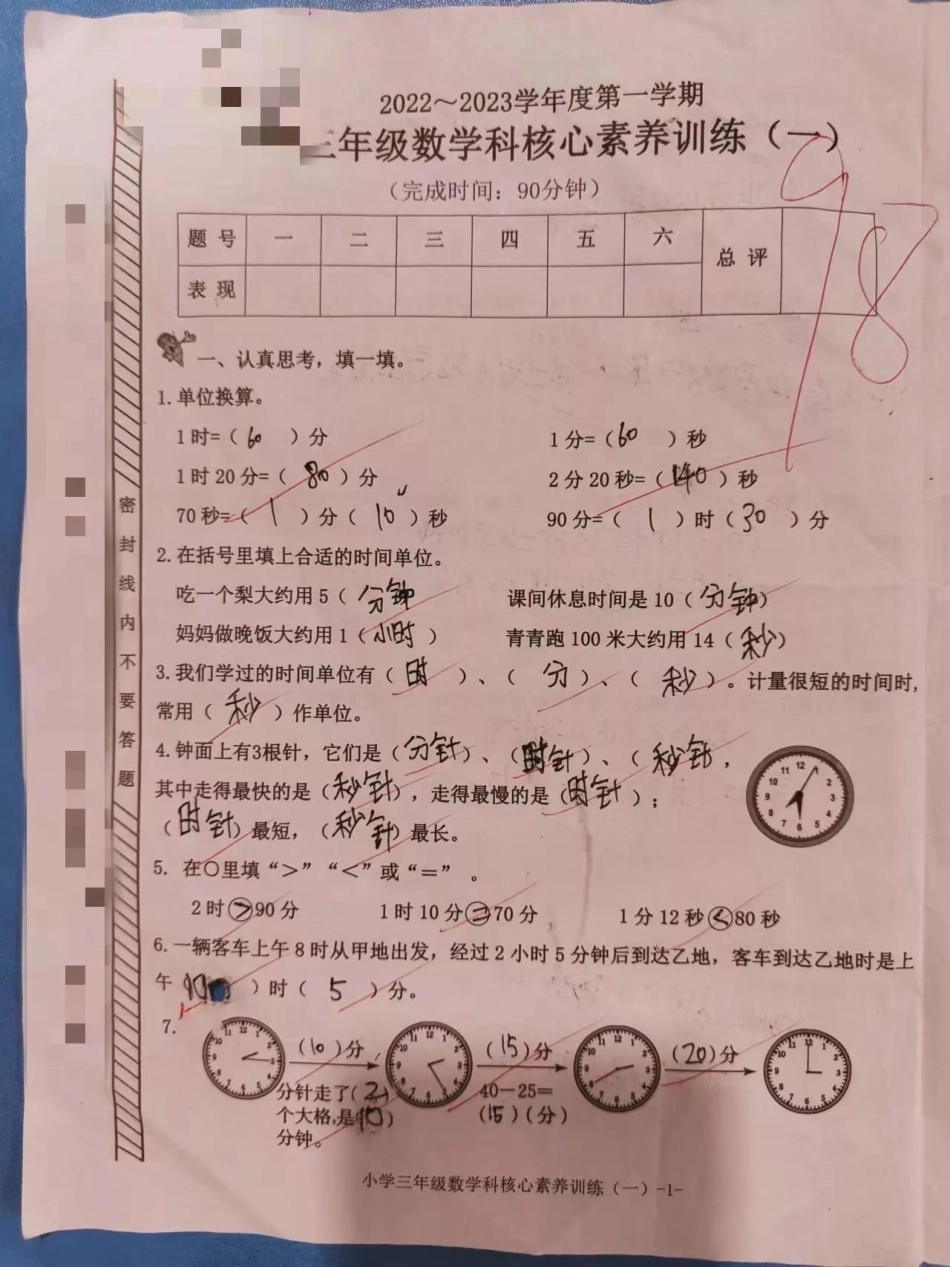 2022～2023学年度第一学期
三年级数学科核心素养训练（一）
（完成时间：90分钟）
98
题 号 一 二 三 四 五 六 总 评
表 现
一、认真思考，填一填。
1.单位换算。
1时=（60）分 1分=（60）秒
1时20分=（80）分 2分20秒=（140）秒
70秒=（1）分（10）秒 90分=（1）时（30）分
2.在括号里填上合适的时间单位。
吃一个梨大约用5（分钟 课间休息时间是10（分钟）
妈妈做晚饭大约用1（小时） 青青跑100米大约用14（秒）
3.我们学过的时间单位有（时）、（分）、（秒）。计量很短的时间时，
常用（秒）作单位。
4.钟面上有3根针，它们是（分针）、（时针）、（秒针，
其中走得最快的是（秒针），走得最慢的是（时针）；
（时针）最短，（秒针）最长。
5. 在○里填“>”“<”或“=”。
2时>90分 1时10分=70分 1分12秒<80秒
6.一辆客车上午8时从甲地出发，经过2小时5分钟后到达乙地，客车到达乙地时是上
午（10）时（5）分。
7.
（10）分 （15）分 （20）分
分针走了（2） 40－25=
个大格,是（10） （15）（分）
分钟。
密封线内不要答题
小学三年级数学科核心素养训练（一）-1-